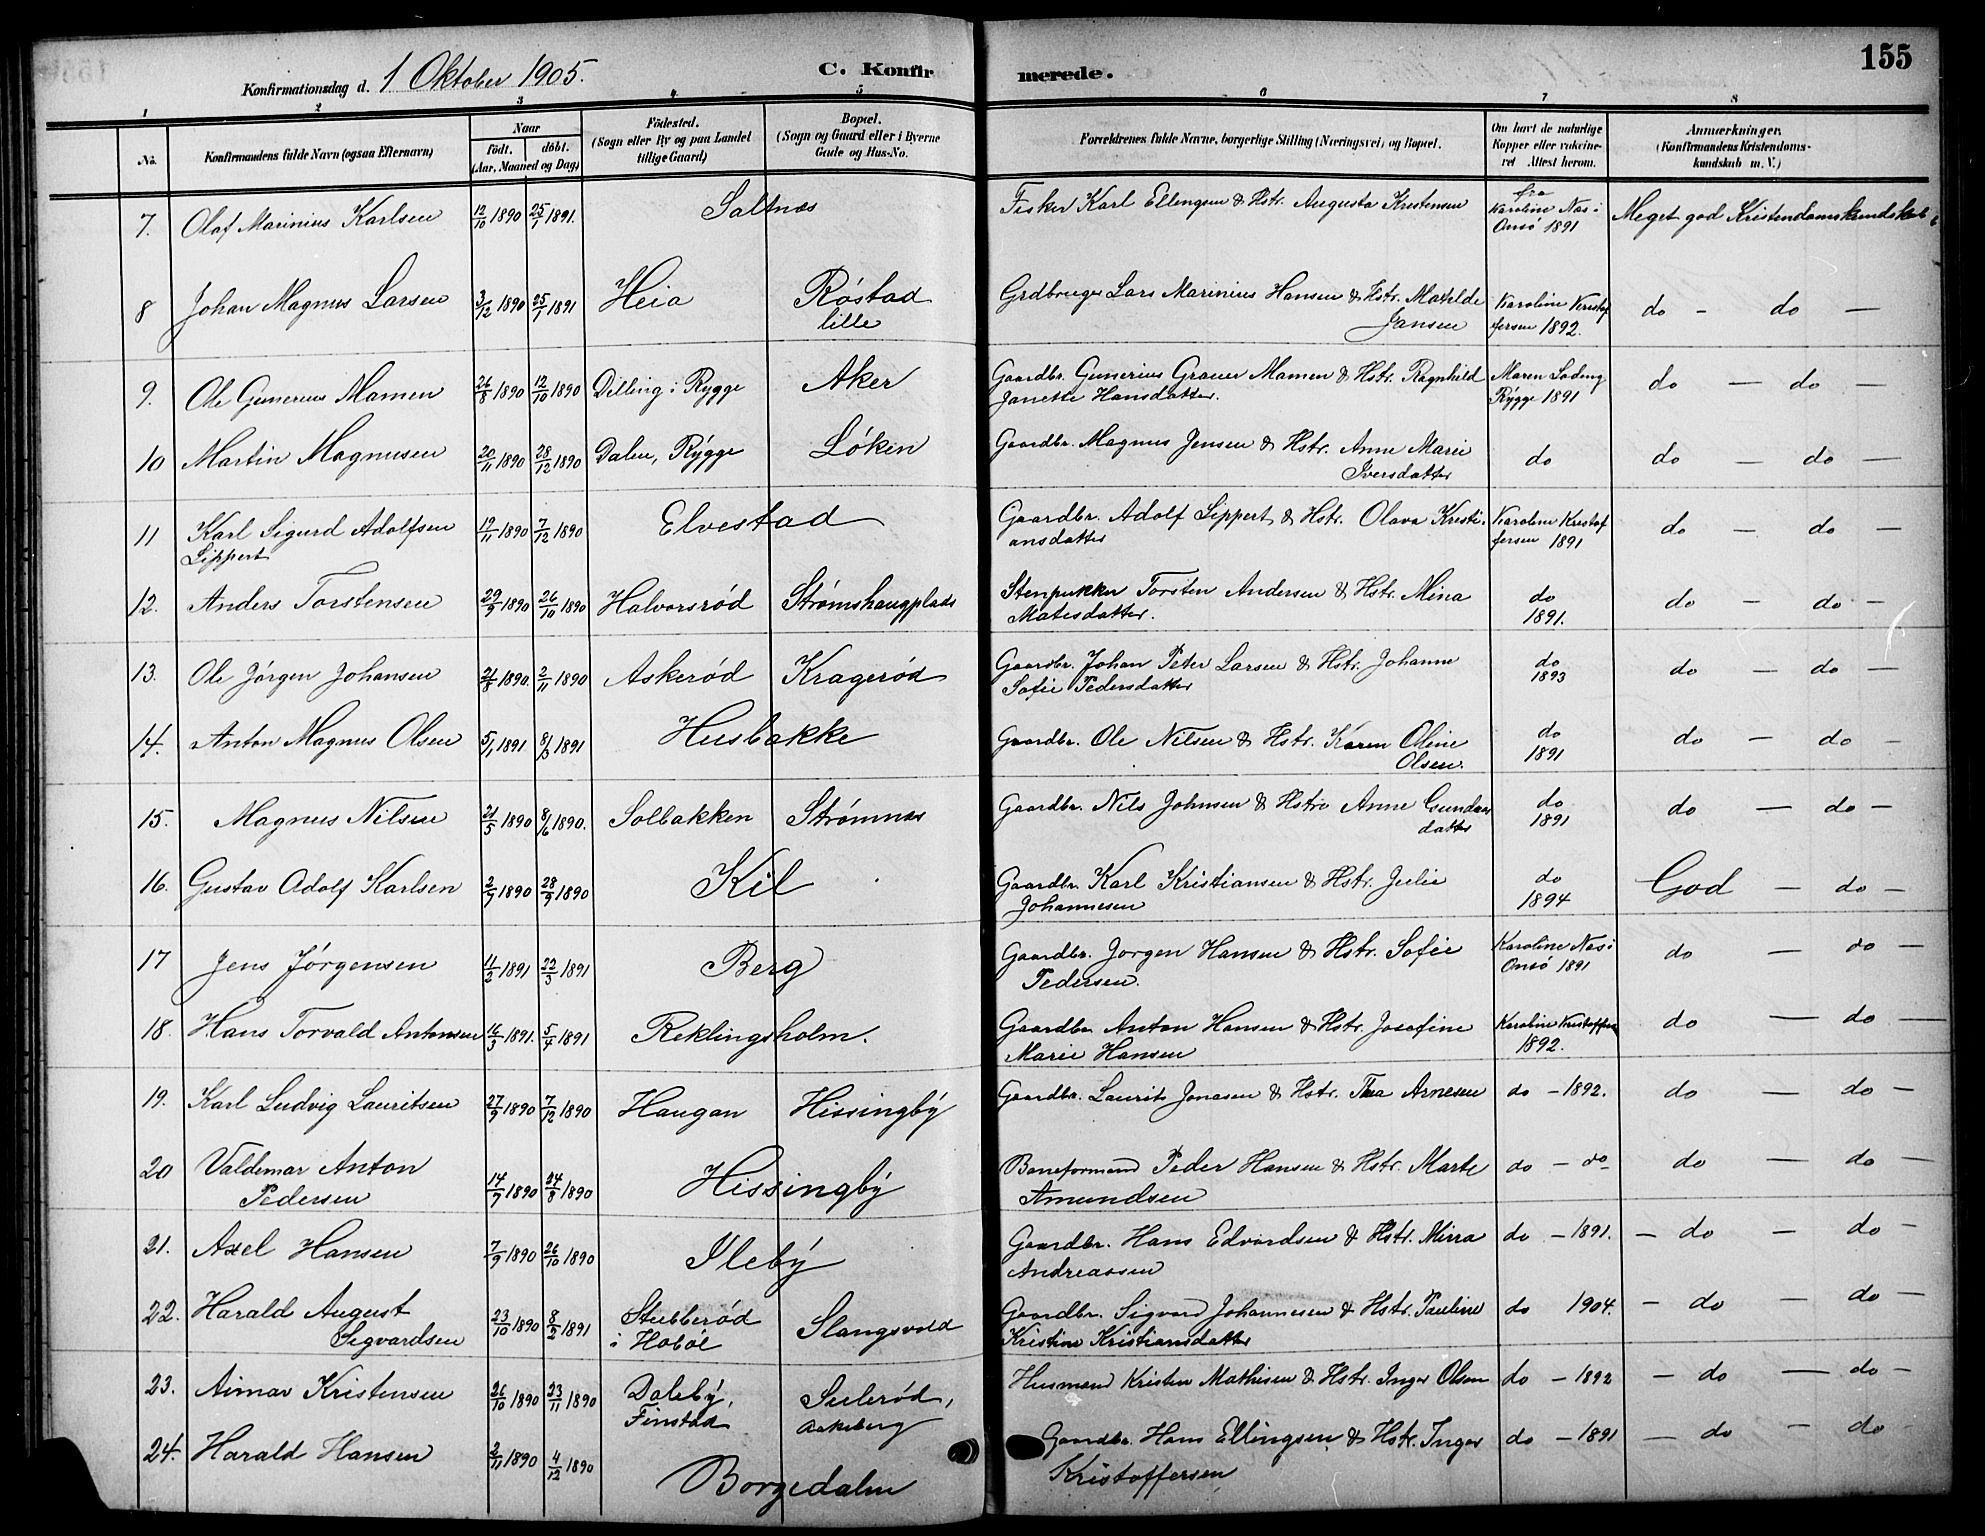 155
Konfirmationsdag d. 1 Oktober 1905.
C. Konfirmerede.
1 2 3 4 5 6 7 8
No.
Konfirmandens fulde Navn (ogsaa Efternavn)
Naar
födt. döbt.
(Aar, Maaned og Dag)
Födested.
(Sogn eller By og paa Landet
tillige Gaard)
Bopæl.
(Sogn og Gaard eller i Byerne
Gade og Hus-No.
Forældrenes fulde Navne, borgerlige Stilling (Næringsvei) og Bopæl.
Om havt de naturlige
Kopper eller vakcine-
ret Attest herom.
Anmærkninger.
(Konfirmandens Kristendoms-
kundskab m. V.)
7. Olaf Marinius Karlsen 12/10 1890 25/1 1891. Saltnæs Fisker Karl Ellingsen & Hstr. Augusta Kristensen fra Karoline Næs i Onsö 1891 Meget god Kristendomskundskab
8 Johan Magnus Larsen 3/12 1890 25/1 1891 Heia Röstad lille Grdbruger Lars Marinius Hansen & Hstr. Matelde Jansen Karoline Kristof fersen 1892. do - do —
9. Ole Gunerius Mamen 26/8 1890 12/10 1890 Dilling i Rygge Aker Gaardbr. Gunerius Grauer Mamen & Hstr. Ragnhild Janette Hansdatter. Maren Rygge 1891 do — do —
10 Martin Magnusen 20/11 1890 28/12 1890 Dalen, Rygge Löken Gaardbr. Magnus Jensen & Hstr. Anne Marie Iversdatter do do — do —
11 Karl Sigurd Adolfsen Lippert 19/11 1890 7/12 1890 Elvestad Gaardbr. Adolf Lippert & Hstr. Olava Kristi- ansdatter Karoline Kristof fersen 1891 do — do —
12. Anders Torstensen 29/9 1890 26/10 1890 Halvorsröd Strømshaugplads Stenpukker Torsten Andersen & Hstr. Mina Matisdatter. do 1891. do — do —
13. Ole Jörgen Johansen 21/8 1890. 2/11 1890 Askeröd Krageröd Gaardbr. Johan Peter Larsen & Hstr. Johanne Sofie Pedersdatter do 1893 do — do —
14. Anton Magnus Olsen 5/1 1891 8/3 1891 Husbakke Gaardbr. Ole Nilsen & Hstr. Karen Oline Olsen. do 1891 do — do —
15. Magnus Nilsen 21/5 1890 8/6 1890. Solbakken Strømnæs Gaardbr. Nils Johnsen & Hstr. Anne datter do 1891 do — do —
16. Gustav Adolf Karlsen 2/9 1890 28/9 1890 Kil Gaardbr. Karl Kristiansen & Hstr. Julie Johannesen do 1894 God — do —
17 Jens Jørgensen 11/2 1891 22/3 1891 Berg Gaardbr. Jorgen Hansen & Hstr. Sofie Pedersen. Karoline Næs i Onsö 1891 do — do —
18. Hans Torvald Antonsen 16/3 1891. 5/4 1891 Reklingsholm. Gaardbr Anton Hansen & Hstr. Josefine Marie Hansen Karoline Kristoffersen 1892. do — do —
19. Karl Ludvig Lauritsen 27/9 1890 7/12 1890 Haugan Hissingby Gaardbr. Laurits Jonasen & Hstr. Thea Arnesen do - 1892. do — do —
20 Valdemar Anton Pedersen 14/7 1890 24/8 1890 Hissingby Baneformand Peder Hansen & Hstr. Marte Amundsen do - do do — do —
21. Axel Hansen 7/9 1890 26/10 1890 Ileby Gaardbr. Hans Edvardsen & Hstr. Mirra Andreassen do - 1891. - do — do —
22. Harald August Sigvardsen 23/10 1890 8/2 1891 Stubberöd i Höböl Slangsvold Gaardbr. Sigvard Johannesen & Hstr. Pauline Kristine Kristiansdatter do 1904. - do — do —
23. Aimar Kristensen 26/10 1890 23/11 1890 Daleby, Finstad Suleröd, Aakeberg Husmand Kristen Mathisen & Hstr. Inger Olsen do - 1892 - do — do —
24. Harald Hansen 2/11 1890 4/12 1890 Borgedalen Gaardbr. Hans Ellingsen & Hstr. Inger Kristoffersen do - 1891 — do — do